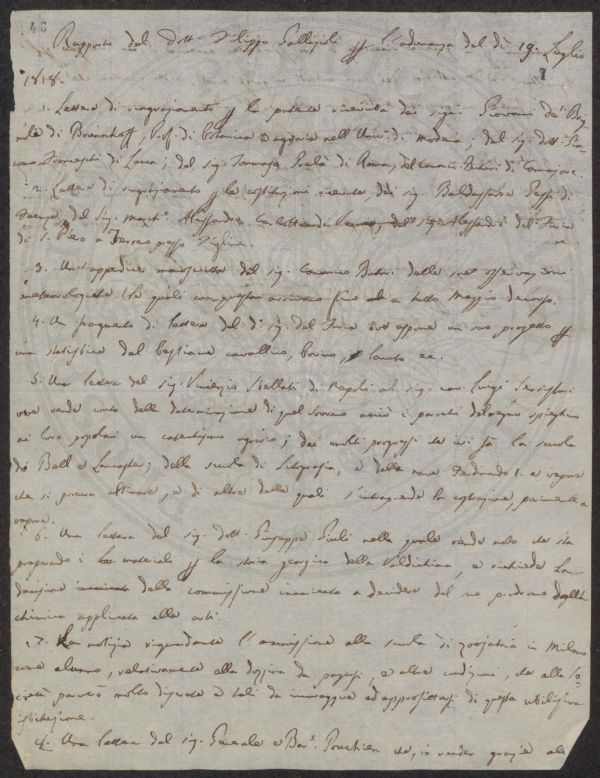 46
Rapporto del dott. Filippo Gallizioli per l'adunanza del dì 19. Luglio
1818.
1. Lettere di ringraziamento per la patente ricevuta dai sigri. Giovanni de' Bri
gnole di Brunnhoff, Prof. di botanica e agraria nell'Univ. di Modena; del sig. dott. Gia
como Franceschi di Lucca; del sig. Tommaso Prelà di Roma, del canonico Butori di Camajore.
2. Lettere di ringraziamento per le costituzioni ricevute, dai sig. Baldassarre Gessi di
Faenza, del sig. March. Alessandro Carlotti di Verona, del sig. Alessandro del Turco
di S. Piero a Terreno presso Figline.
3. Un'appendice manoscritta del sig. Canonico Butori delle sue osservazioni
meteorologiche, le quali con questa arrivano fino a tutto Maggio decorso.
4. Un frammento di lettera del dº sig. del Turco ove espone un suo progetto per
una statistica del bestiame cavallino, bovino, lanuto ec.
5. Una lettera del sig. Vincenzio Stellati di Napoli al sig. cav. Luigi Serristori
ove rende conto della determinazione di quel sovrano acciò i parochi del regno spieghino
ai loro popolani un catechismo agrario; dei molti progressi che ivi fa la scuola
di Bell e Lancaster; della scuola di Litografia, e della nave Ferdinando I. a vapore
che si procura ultimare, e di altre delle quali s'intraprende la costruzione, parimente a
vapore.
6. Una lettera del sig. dott. Giuseppe Giuli nella quale rende noto che sta
preparando i materiali per la storia georgica della Valdichiana, e richiede la
decisione della commissione incaricata a decidere del suo problema della
chimica applicata alle arti.
7. La notizia riguardante l'ammissione alla scuola di zoojatria in Milano
come alunno, relativamente alla dozzina da pagarsi, e altre condizioni, che alla So-
cietà parvero molto discrete e tali da incoraggire ad approfittarsi di questa utilissima
istituzione.
8. Una lettera del sig. Generale e Bar. che, in render grazie alla